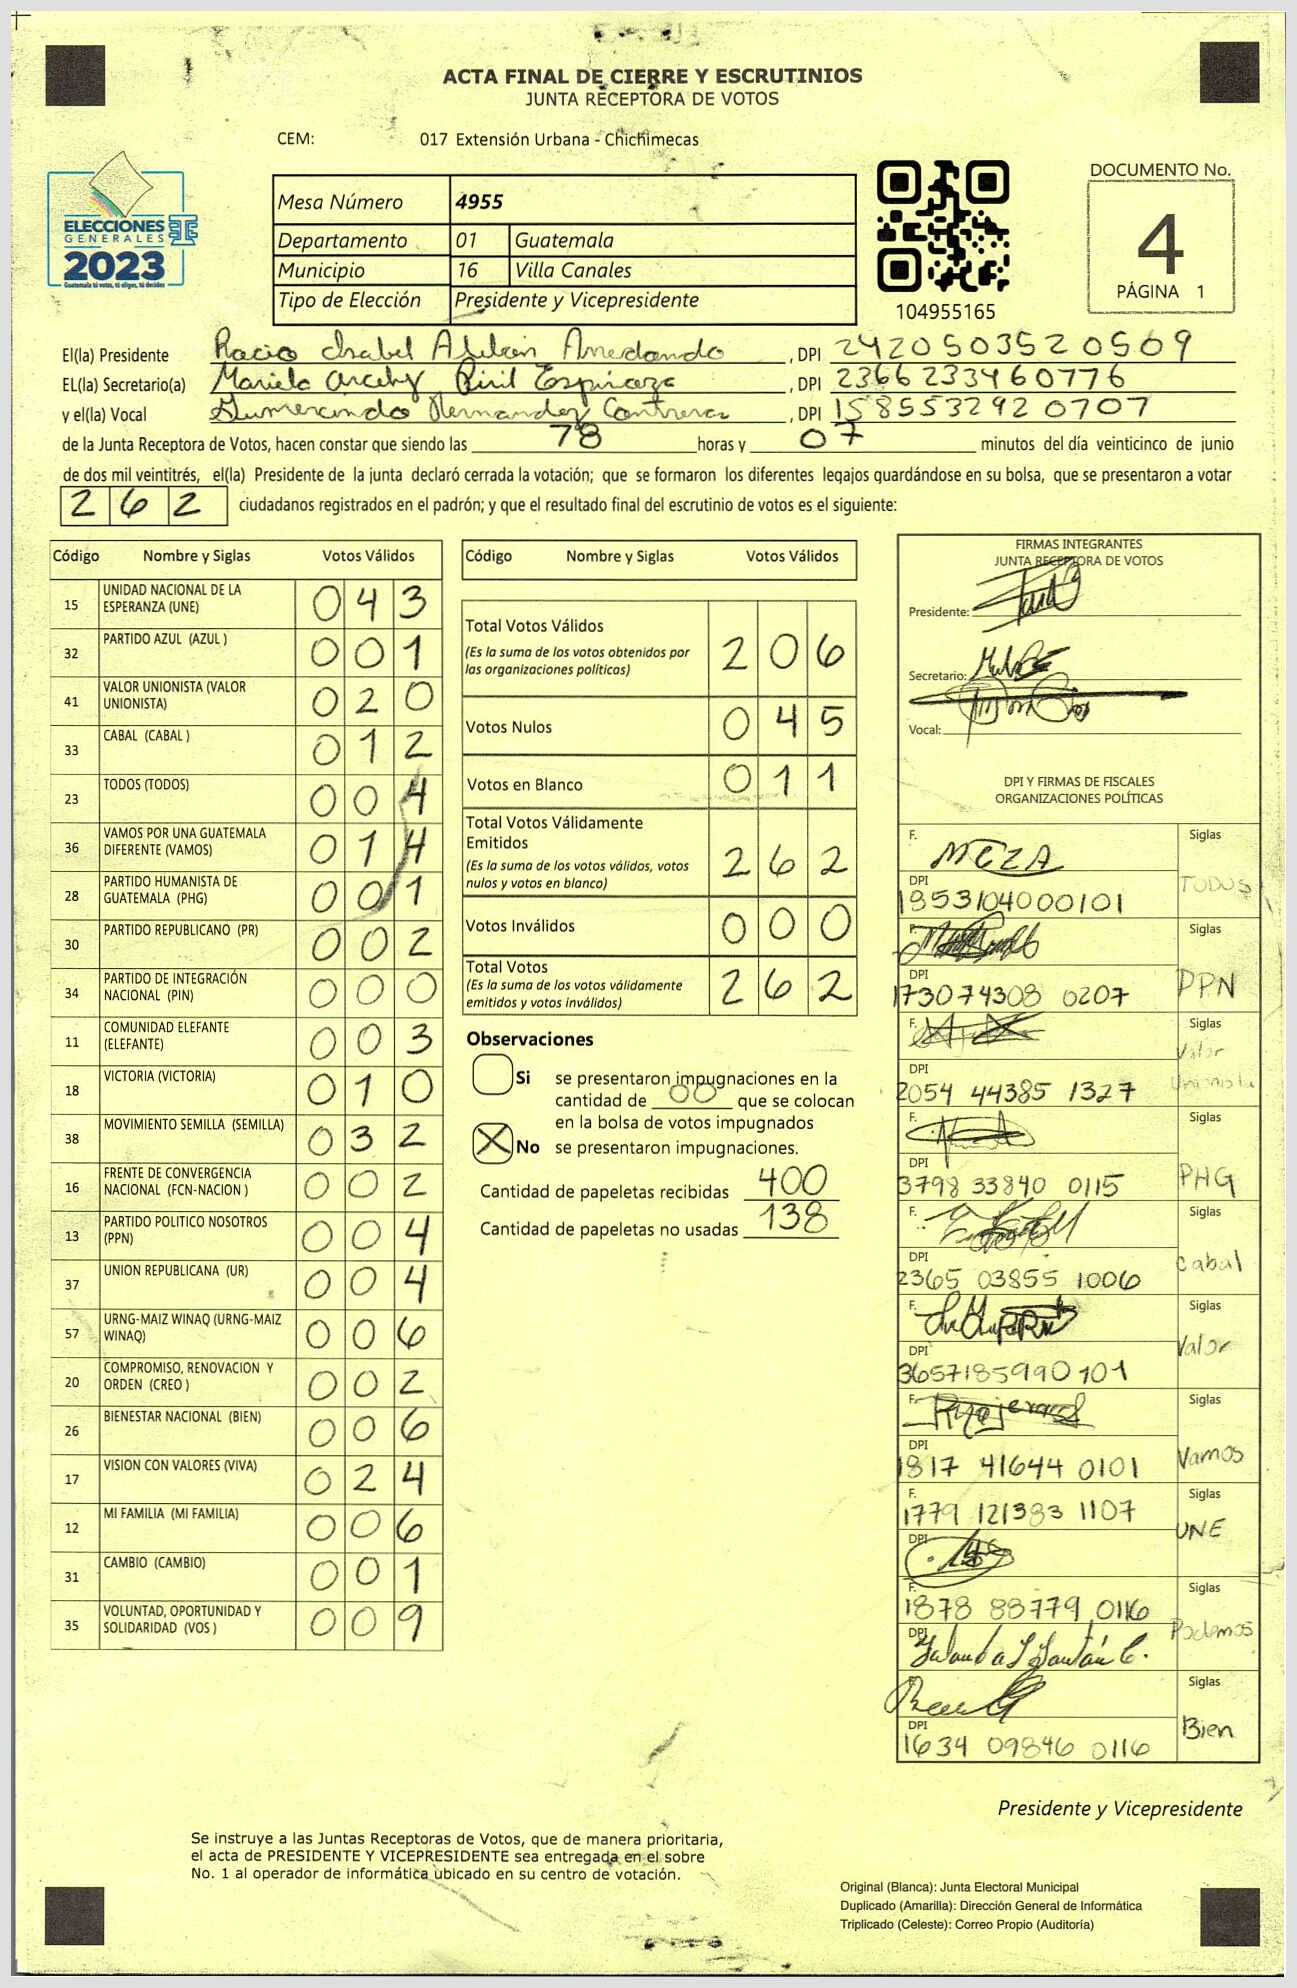 ACTA FINAL DE CIERRE Y ESCRUTINIOS
JUNTA RECEPTORA DE VOTOS
CEM: 017 Extensión Urbana - Chichimecas
ELECCIONES
GENERALES
2023
Guatemala tú votas, tú eliges, tú decides
Mesa Número 4955
Departamento 01 Guatemala
Municipio 16 Villa Canales
Tipo de Elección Presidente y Vicepresidente
104955165
DOCUMENTO No.
4
PÁGINA 1
El(la) Presidente Rocio Isabel Arredondo , DPI 2420503520509
EL(la) Secretario(a) Mariela Espinoza , DPI 2366233460776
y el(la) Vocal Gumercindo Hernandez Contreras , DPI 1585532920707
de la Junta Receptora de Votos, hacen constar que siendo las 78 horas y 07 minutos del día veinticinco de junio
de dos mil veintitrés, el(la) Presidente de la junta declaró cerrada la votación; que se formaron los diferentes legajos guardándose en su bolsa, que se presentaron a votar
262 ciudadanos registrados en el padrón; y que el resultado final del escrutinio de votos es el siguiente:
Código Nombre y Siglas Votos Válidos
15 UNIDAD NACIONAL DE LA ESPERANZA (UNE) 043
32 PARTIDO AZUL (AZUL ) 001
41 VALOR UNIONISTA (VALOR UNIONISTA) 020
33 CABAL (CABAL ) 012
23 TODOS (TODOS) 004
36 VAMOS POR UNA GUATEMALA DIFERENTE (VAMOS) 014
28 PARTIDO HUMANISTA DE GUATEMALA (PHG) 001
30 PARTIDO REPUBLICANO (PR) 002
34 PARTIDO DE INTEGRACIÓN NACIONAL (PIN) 000
11 COMUNIDAD ELEFANTE (ELEFANTE) 003
18 VICTORIA (VICTORIA) 010
38 MOVIMIENTO SEMILLA (SEMILLA) 032
16 FRENTE DE CONVERGENCIA NACIONAL (FCN-NACION ) 002
13 PARTIDO POLITICO NOSOTROS (PPN) 004
37 UNION REPUBLICANA (UR) 004
57 URNG-MAIZ WINAQ (URNG-MAIZ WINAQ) 006
20 COMPROMISO, RENOVACION Y ORDEN (CREO ) 002
26 BIENESTAR NACIONAL (BIEN) 006
17 VISION CON VALORES (VIVA) 024
12 MI FAMILIA (MI FAMILIA) 006
31 CAMBIO (CAMBIO) 001
35 VOLUNTAD, OPORTUNIDAD Y SOLIDARIDAD (VOS ) 009
Código Nombre y Siglas Votos Válidos
Total Votos Válidos 206
(Es la suma de los votos obtenidos por
las organizaciones políticas)
Votos Nulos 045
Votos en Blanco 011
Total Votos Válidamente
Emitidos 262
(Es la suma de los votos válidos, votos
nulos y votos en blanco)
Votos Inválidos 000
Total Votos 262
(Es la suma de los votos válidamente
emitidos y votos inválidos)
Observaciones
Si se presentaron impugnaciones en la
cantidad de 00 que se colocan
en la bolsa de votos impugnados
X No se presentaron impugnaciones.
Cantidad de papeletas recibidas 400
Cantidad de papeletas no usadas 138
FIRMAS INTEGRANTES
JUNTA RECEPTORA DE VOTOS
Presidente:
Secretario:
Vocal:
DPI Y FIRMAS DE FISCALES
ORGANIZACIONES POLÍTICAS
F. MEZA Siglas
DPI TODOS
1853104000101
F. Siglas
DPI PPN
173074308 0207
F. Siglas
DPI Valor Unionista
2054 44385 1327
F. Siglas
DPI PHG
3798 33840 0115
F. Siglas
DPI Cabal
2365 03855 1006
F. Siglas
DPI Valor
3657185990101
F. Siglas
DPI Vamos
1817 41644 0101
F. Siglas
1779 121383 1107 UNE
DPI
F. Siglas
1878 88779 0116
DPI Podemos
Siglas
DPI Bien
1634 09846 0116
Presidente y Vicepresidente
Se instruye a las Juntas Receptoras de Votos, que de manera prioritaria,
el acta de PRESIDENTE Y VICEPRESIDENTE sea entregada en el sobre
No. 1 al operador de informática ubicado en su centro de votación.
Original (Blanca): Junta Electoral Municipal
Duplicado (Amarilla): Dirección General de Informática
Triplicado (Celeste): Correo Propio (Auditoría)